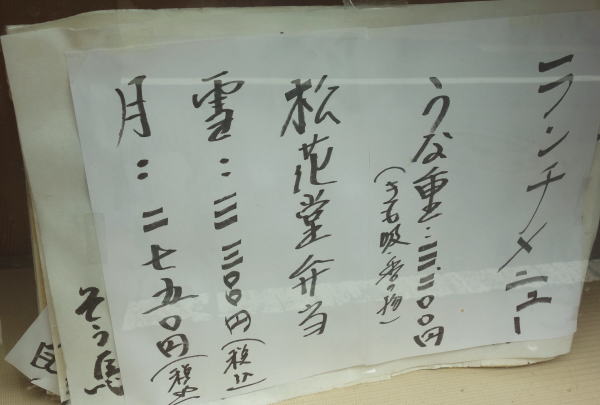 ランチメニュー
うな重:三三〇〇円
(きも吸・香の物)
松花堂弁当
雪:三三〇〇円(税込)
月:二七五〇円(税込
そう馬